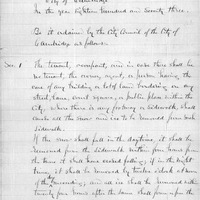 City of Cambridge.
In the year eighteen hundred and seventy three.
Be it ordained by the City Council of the City of
Cambridge as follows:
Sec. 1 The tenant, occupant, and in case there shall be
no tenant, the owner, agent, or person having the
care of any building or lot of land bordering on any
street, lane, court, square, or public place within the
city, where there is any footway or sidewalk, shall
cause all the snow and ice to be removed from such
sidewalk.
If the snow shall fall in the daytime, it shall be
removed from the sidewalk within four hours from
the time it shall have ceased falling; if in the night
time, it shall be removed by twelve o'clock at noon
of the day succeeding; and all ice shall be removed within
twenty four hours after the same shall form upon the